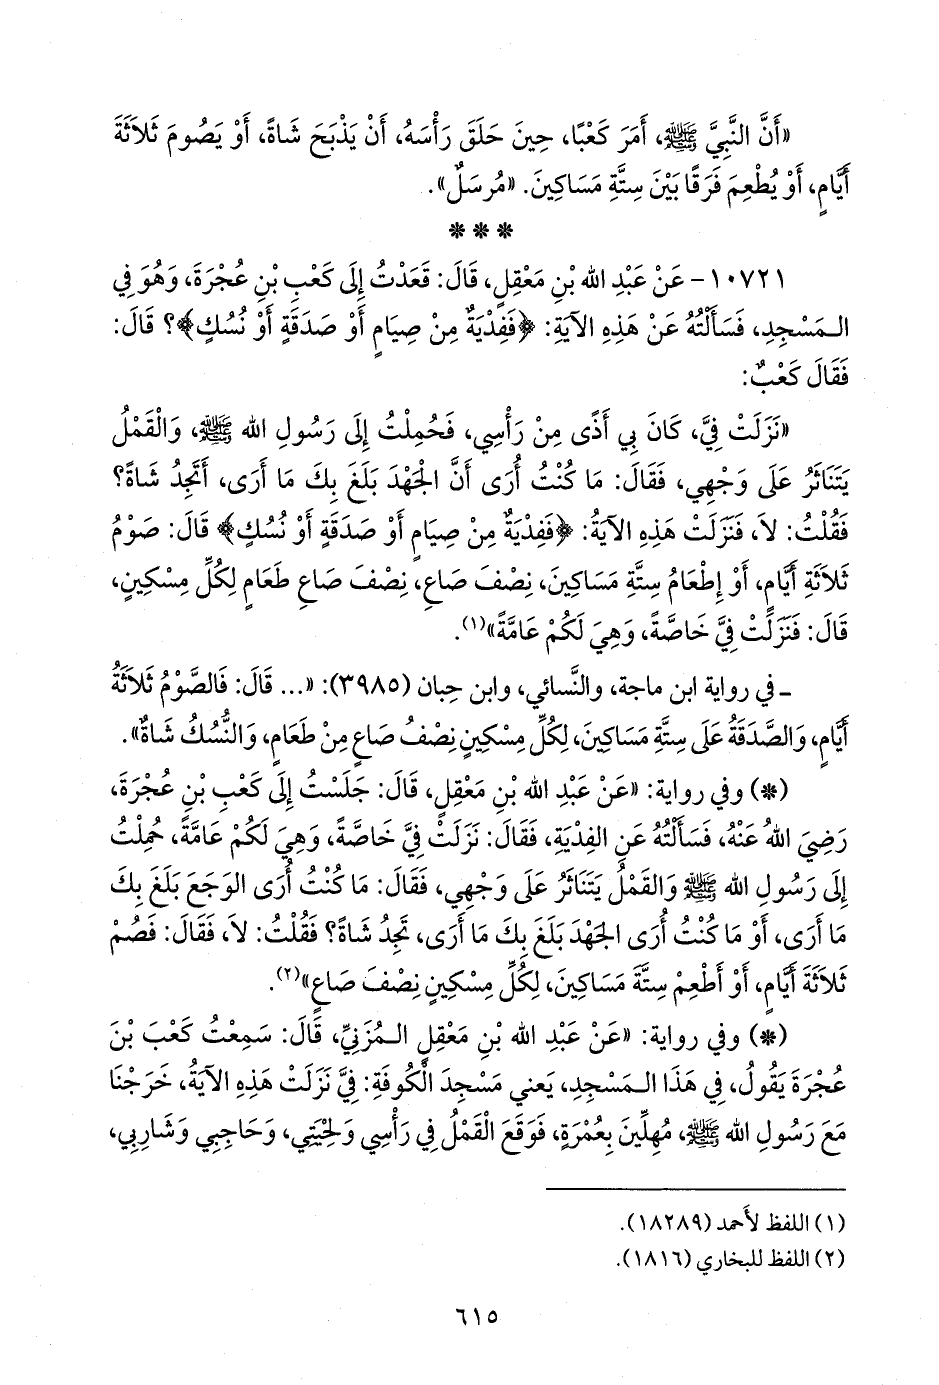 «أَنَّ النَّبِيَّ ﷺ، أَمَرَ كَعْبًا، حِينَ حَلَقَ رَأْسَهُ، أَنْ يَذْبَحَ شَاةً، أَوْ يَصُومَ ثَلَاثَةَ
أَيَّامٍ، أَوْ يُطْعِمَ فَرَقًا بَيْنَ سِتَّةِ مَسَاكِينَ. «مُرسَلٌ».
* * *
١٠٧٢١- عَنْ عَبْدِ الله بْنِ مَعْقِلٍ، قَالَ: قَعَدْتُ إِلَى كَعْبِ بْنِ عُجْرَةَ، وَهُوَ فِي
الْمَسْجِدِ، فَسَأَلْتُهُ عَنْ هَذِهِ الآيَةِ: ﴿فَفِدْيَةٌ مِنْ صِيَامٍ أَوْ صَدَقَةٍ أَوْ نُسُكٍ﴾؟ قَالَ:
فَقَالَ كَعْبٌ:
«نَزَلَتْ فِيَّ، كَانَ بِي أَذًى مِنْ رَأْسِي، فَحُمِلْتُ إِلَى رَسُولِ الله ﷺ، وَالْقَمْلُ
يَتَنَاثَرُ عَلَى وَجْهِي، فَقَالَ: مَا كُنْتُ أُرَى أَنَّ الْجَهْدَ بَلَغَ بِكَ مَا أَرَى، أَتَجِدُ شَاةً؟
فَقُلْتُ: لاَ، فَنَزَلَتْ هَذِهِ الآيَةُ: ﴿فَفِدْيَةٌ مِنْ صِيَامٍ أَوْ صَدَقَةٍ أَوْ نُسُكٍ﴾ قَالَ: صَوْمُ
ثَلاَثَةِ أَيَّامٍ، أَوْ إِطْعَامُ سِتَّةِ مَسَاكِينَ، نِصْفَ صَاعٍ، نِصْفَ صَاعِ طَعَامٍ لِكُلِّ مِسْكِينٍ،
قَالَ: فَنَزَلَتْ فِيَّ خَاصَّةً، وَهِيَ لَكُمْ عَامَّةً»(١).
ـ في رواية ابن ماجة، والنَّسائي، وابن حِبان (٣٩٨٥): «... قَالَ: فَالصَّوْمُ ثَلاَثَةُ
أَيَّامٍ، وَالصَّدَقَةُ عَلَى سِتَّةِ مَسَاكِينَ، لِكُلِّ مِسْكِينٍ نِصْفُ صَاعٍ مِنْ طَعَامٍ، وَالنُّسُكُ شَاةٌ».
(*) وفي رواية: «عَنْ عَبْدِ الله بْنِ مَعْقِلٍ، قَالَ: جَلَسْتُ إِلَى كَعْبِ بْنِ عُجْرَةَ،
رَضِيَ اللهُ عَنْهُ، فَسَأَلْتُهُ عَنِ الفِدْيَةِ، فَقَالَ: نَزَلَتْ فِيَّ خَاصَّةً، وَهِيَ لَكُمْ عَامَّةً، حُمِلْتُ
إِلَى رَسُولِ الله ﷺ وَالقَمْلُ يَتَنَاثَرُ عَلَى وَجْهِي، فَقَالَ: مَا كُنْتُ أُرَى الوَجَعَ بَلَغَ بِكَ
مَا أَرَى، أَوْ مَا كُنْتُ أُرَى الجَهْدَ بَلَغَ بِكَ مَا أَرَى، تَجِدُ شَاةً؟ فَقُلْتُ: لاَ، فَقَالَ: فَصُمْ
ثَلاَثَةَ أَيَّامٍ، أَوْ أَطْعِمْ سِتَّةَ مَسَاكِينَ، لِكُلِّ مِسْكِينٍ نِصْفَ صَاعٍ»(٢).
(*) وفي رواية: «عَنْ عَبْدِ الله بْنِ مَعْقِلٍ الْمُزَنِيِّ، قَالَ: سَمِعْتُ كَعْبَ بْنَ
عُجْرَةَ يَقُولُ، فِي هَذَا الْمَسْجِدِ، يَعني مَسْجِدَ الْكُوفَةِ: فِيَّ نَزَلَتْ هَذِهِ الآيَةُ، خَرَجْنَا
مَعَ رَسُولِ الله ﷺ، مُهِلِّينَ بِعُمْرَةٍ، فَوَقَعَ الْقَمْلُ فِي رَأْسِي وَلِحْيَتِي، وَحَاجِبِي وَشَارِبِي،
(١) اللفظ لأحمد (١٨٢٨٩).
(٢) اللفظ للبخاري (١٨١٦).
٦١٥